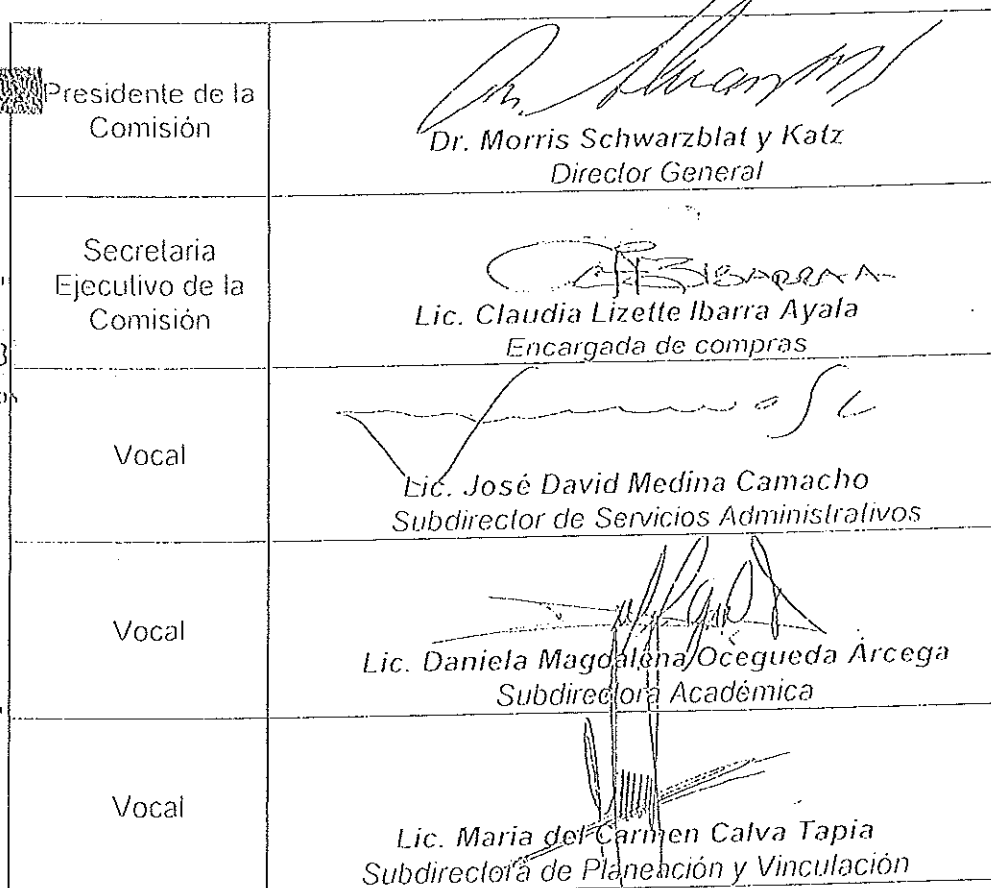 Presidente de la
Comisión
Dr. Morris Schwarzblat y Katz
Director General
Secretaria
Ejecutivo de la
Comisión
Lic. Claudia Lizette Ibarra Ayala
Encargada de compras
Vocal
Lic. José David Medina Camacho
Subdirector de Servicios Administrativos
Vocal
Lic. Daniela Magdalena Ocegueda Árcega
Subdirectora Académica
Vocal
Lic. Maria del Carmen Calva Tapia
Subdirectora de Planeación y Vinculación